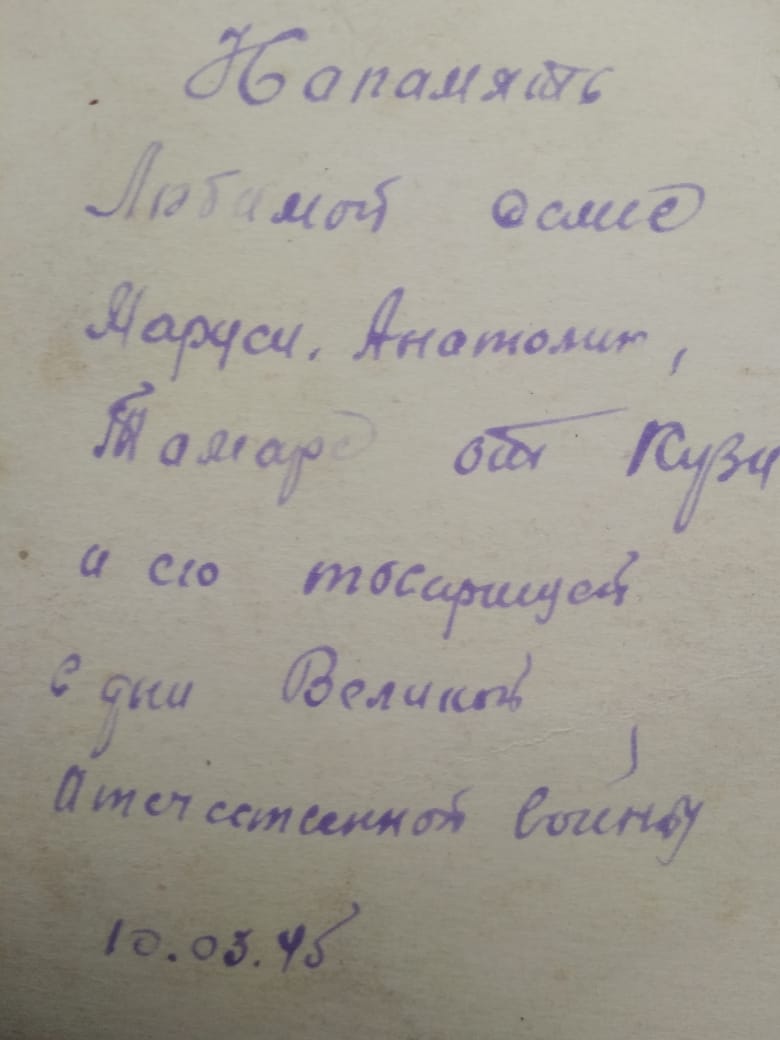 Напамять
Любимой
Маруси, Анатолию,
Тамаре от Кузи
и его товарищей
в дни Великой
Отечественной войны
10.03.45